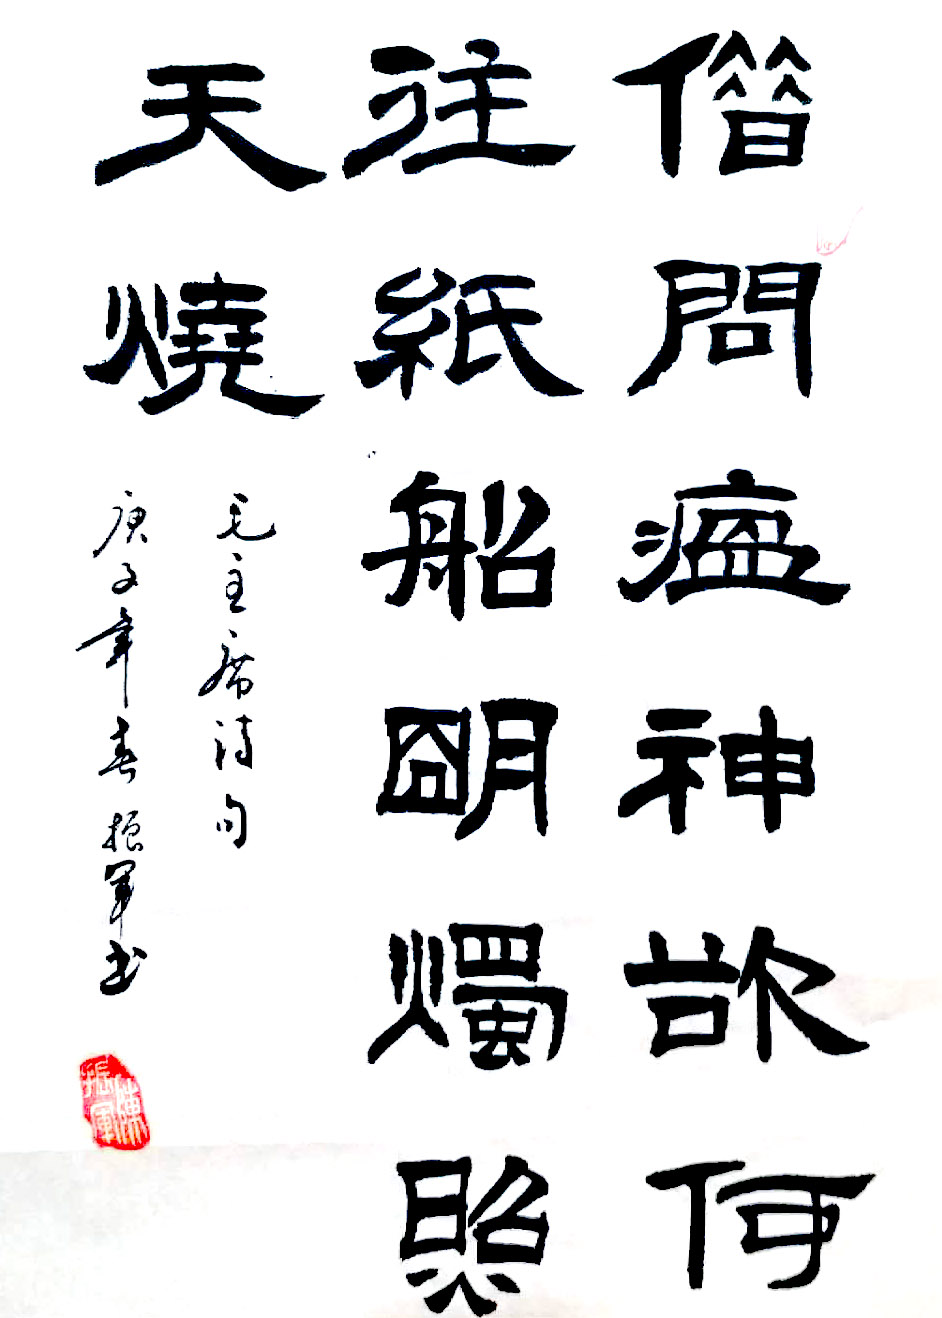 借問瘟神欲何
往紙船明燭照
天燒
毛主席詩句
庚子年春振軍书
陳振軍